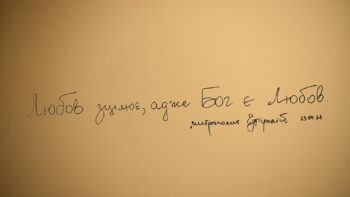 Любов зцілює, адже Бог є Любов.
митрополит Епіфаній 23.04.21